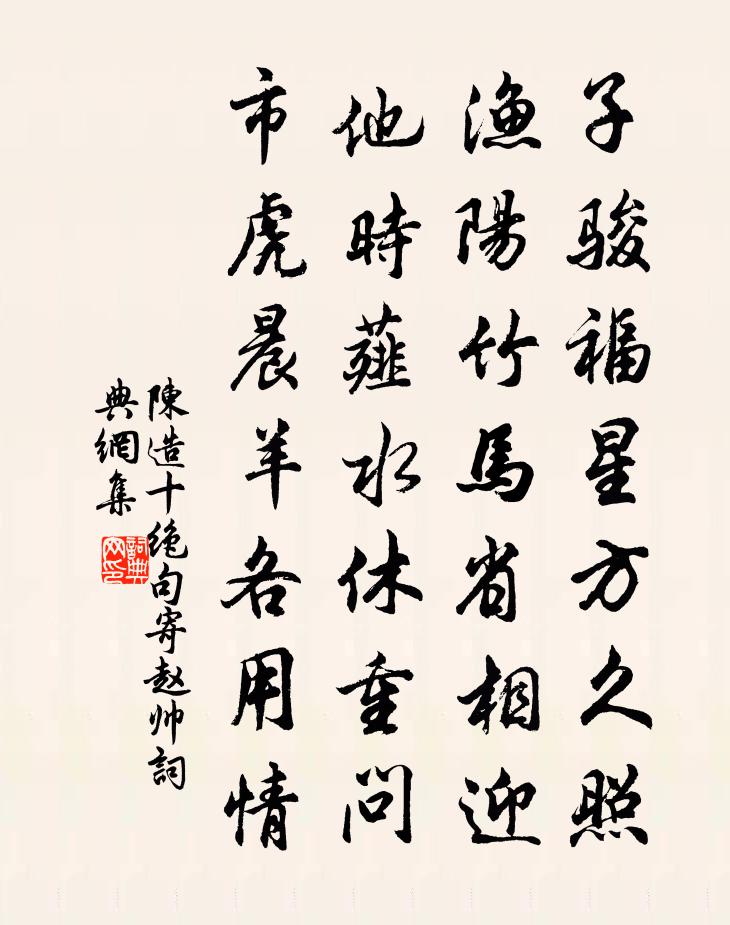 子駿福星方久照
漁陽竹馬省相迎
他時薤水休重問
市虎晨羊各用情
陳造十绝句寄赵帅詞
典網集
詞典
网